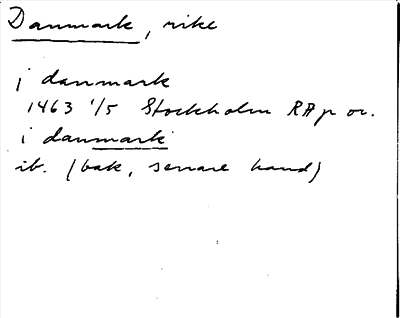 Danmark, rike
j danmark
1463 1/5 Stockholm RAp or.
i danmark
ib. (bak, senare hand)